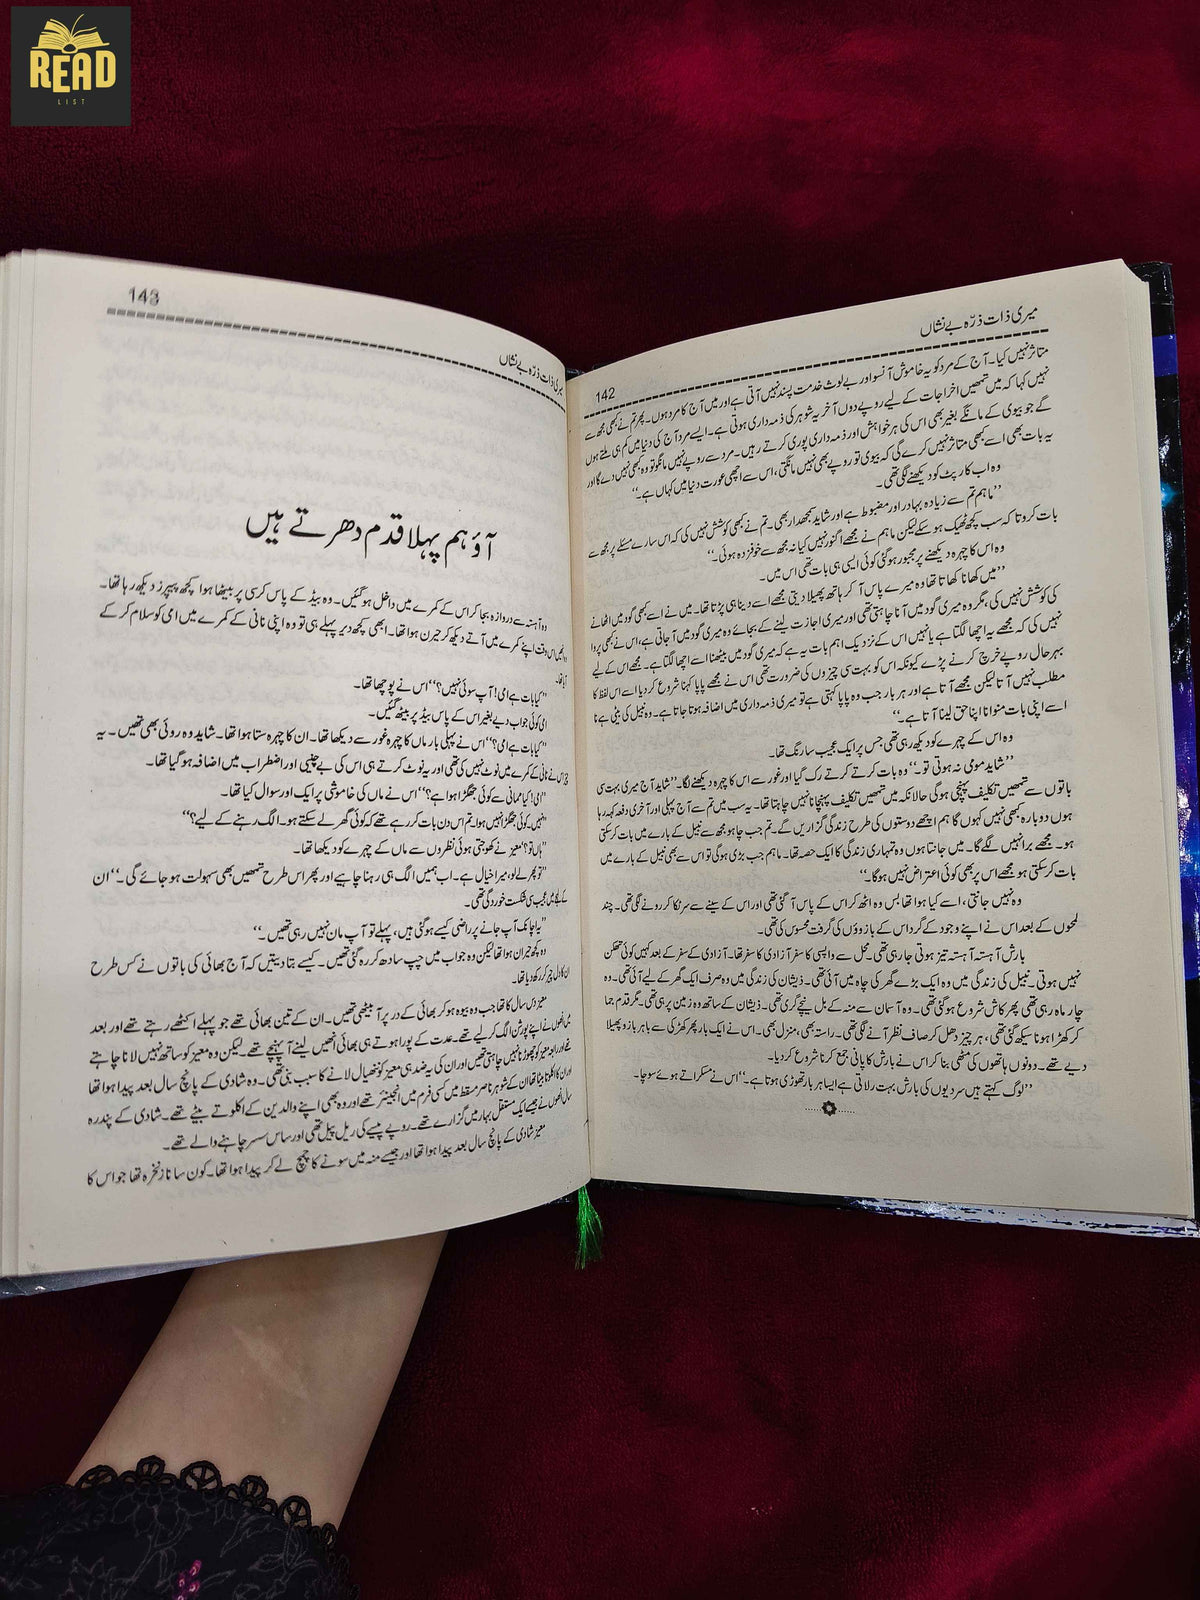 READ
LIST
میری ذات ذرّہ بے نشاں
142
متاثر نہیں کیا۔ آج کے مرد کو یہ خاموش آنسو اور بے لوث خدمت پسند نہیں آتی ہے اور میں آج کا مرد ہوں۔ پھر تم نے بھی مجھ سے
نہیں کہا کہ میں تمھیں اخراجات کے لیے روپے دوں آخر یہ شوہر کی ذمہ داری ہوتی ہے۔ ایسے مرد آج کی دنیا میں کم ہی ملتے ہوں
گے جو بیوی کے مانگے بغیر بھی اس کی ہر خواہش اور ذمہ داری پوری کرتے رہیں۔ مرد سے روپے نہیں مانگو تو وہ کبھی نہیں دے گا اور
یہ بات بھی اسے کبھی متاثر نہیں کرے گی کہ بیوی تو روپے بھی نہیں مانگتی، اس سے اچھی عورت دنیا میں کہاں ہے۔‘‘
وہ اب کارپٹ کو دیکھنے لگی تھی۔
’’ماہم تم سے زیادہ بہادر اور مضبوط ہے اور شاید سمجھدار بھی۔ تم نے کبھی کوشش نہیں کی کہ اس سارے مسئلے پر مجھ سے
بات کرو تا کہ سب کچھ ٹھیک ہو سکے لیکن ماہم نے مجھے اگنور نہیں کیا نہ مجھ سے خوفزدہ ہوئی۔‘‘
وہ اس کا چہرہ دیکھنے پر مجبور ہو گئی کوئی ایسی ہی بات تھی اس میں۔
’’میں کھانا کھاتا تھا وہ میرے پاس آ کر ہاتھ پھیلا دیتی مجھے اسے دینا ہی پڑتا تھا۔ میں نے اسے کبھی گود میں اٹھانے
کی کوشش نہیں کی، مگر وہ میری گود میں آنا چاہتی تھی اور میری اجازت لینے کے بجائے وہ میری گود میں آ جاتی ہے، اس نے کبھی پروا
نہیں کی کہ مجھے یہ اچھا لگتا ہے یا نہیں اس کے نزدیک اہم بات یہ ہے کہ میری گود میں بیٹھنا اسے اچھا لگتا ہے۔ مجھے اس کے لیے
بہرحال روپے خرچ کرنے پڑے کیونکہ اس کو بہت سی چیزوں کی ضرورت تھی اس نے مجھے پاپا کہنا شروع کر دیا اسے اس لفظ کا
مطلب نہیں آتا لیکن مجھے آتا ہے اور ہر بار جب وہ پاپا کہتی ہے تو میری ذمہ داری میں اضافہ ہوتا جاتا ہے۔ وہ نبیل کی بیٹی ہے نا
اسے اپنی بات منوانا اپنا حق لینا آتا ہے۔‘‘
وہ اس کے چہرے کو دیکھ رہی تھی جس پر ایک عجیب سا رنگ تھا۔
’’شاید مومی نہ ہوتی تو۔‘‘ وہ بات کرتے کرتے رک گیا اور غور سے اس کا چہرہ دیکھنے لگا۔ ’’شاید آج میری بہت سی
باتوں سے تمھیں تکلیف پہنچی ہو گی حالانکہ میں تمھیں تکلیف پہنچانا نہیں چاہتا تھا۔ یہ سب میں تم سے آج پہلی اور آخری دفعہ کہہ رہا
ہوں دوبارہ کبھی نہیں کہوں گا ہم اچھے دوستوں کی طرح زندگی گزاریں گے۔ تم جب چاہو مجھ سے نبیل کے بارے میں بات کر سکتی
ہو۔ مجھے برا نہیں لگے گا۔ میں جانتا ہوں وہ تمہاری زندگی کا ایک حصہ تھا۔ ماہم جب بڑی ہو گی تو اس سے بھی نبیل کے بارے میں
بات کر سکتی ہو مجھے اس پر بھی کوئی اعتراض نہیں ہو گا۔‘‘
وہ نہیں جانتی، اسے کیا ہوا تھا بس وہ اٹھ کر اس کے پاس آ گئی تھی اور اس کے سینے سے سر ٹکا کر رونے لگی تھی۔ چند
لمحوں کے بعد اس نے اپنے وجود کے گرد اس کے بازوؤں کی گرفت محسوس کی تھی۔
بارش آہستہ آہستہ تیز ہوتی جا رہی تھی۔ محل سے واپسی کا سفر آزادی کا سفر تھا۔ آزادی کے سفر کے بعد کہیں کوئی تھکن
نہیں ہوتی۔ نبیل کی زندگی میں وہ ایک بڑے گھر کی چاہ میں آئی تھی۔ ذیشان کی زندگی میں وہ صرف ایک گھر کے لیے آئی تھی۔ وہ
چار ماہ رہی تھی پھر کاش شروع ہو گئی تھی۔ وہ آسمان سے منہ کے بل نیچے گری تھی۔ ذیشان کے ساتھ وہ زمین پر ہی تھی۔ مگر قدم جما
کر کھڑا ہونا سیکھ گئی تھی، ہر چیز دھل کر صاف نظر آنے لگی تھی۔ راستہ بھی، منزل بھی۔ اس نے ایک بار پھر کھڑکی سے باہر بازو پھیلا
دیے تھے۔ دونوں ہاتھوں کی مٹھی بنا کر اس نے بارش کا پانی جمع کرنا شروع کر دیا۔
’’لوگ کہتے ہیں سردیوں کی بارش بہت رلاتی ہے ایسا ہر بار تھوڑی ہوتا ہے۔‘‘ اس نے مسکراتے ہوئے سوچا۔
143
میری ذات ذرّہ بے نشاں
آؤ ہم پہلا قدم دھرتے ہیں
وہ آہستہ سے دروازہ بجا کر اس کے کمرے میں داخل ہو گئیں۔ وہ بیڈ کے پاس کرسی پر بیٹھا ہوا کچھ پیپرز دیکھ رہا تھا۔
اس وقت اپنے کمرے میں آتے دیکھ کر حیرن ہوا تھا۔ ابھی کچھ دیر پہلے ہی تو وہ اپنی نانی کے کمرے میں امی کو سلام کر کے
آیا تھا۔
’’کیا بات ہے امی! آپ سوئی نہیں؟‘‘ اس نے پوچھا تھا۔
امی کوئی جواب دیے بغیر اس کے پاس بیڈ پر بیٹھ گئیں۔
’’کیا بات ہے امی؟‘‘ اس نے پہلی بار ماں کا چہرہ غور سے دیکھا تھا۔ ان کا چہرہ ستا ہوا تھا۔ شاید وہ روئی بھی تھیں۔ یہ
چیز اس نے نانی کے کمرے میں نوٹ نہیں کی تھی اور یہ نوٹ کرتے ہی اس کی بے چینی اور اضطراب میں اضافہ ہو گیا تھا۔
’’امی! کیا ممانی سے کوئی جھگڑا ہوا ہے؟‘‘ اس نے ماں کی خاموشی پر ایک اور سوال کیا تھا۔
’’نہیں۔ کوئی جھگڑا نہیں ہوا۔ تم اس دن بات کر رہے تھے کہ کوئی گھر لے سکتے ہو۔ الگ رہنے کے لیے؟‘‘
’’ہاں تو؟‘‘ معیز نے کھوجتی ہوئی نظروں سے ماں کے چہرے کو دیکھا تھا۔
’’تو پھر لے لو، میرا خیال ہے۔ اب ہمیں الگ ہی رہنا چاہیے اور پھر اس طرح تمھیں بھی سہولت ہو جائے گی۔‘‘ ان
کے لہجے میں عجیب سی شکست خوردگی تھی۔
’’یہ اچانک آپ جانے پر راضی کیسے ہو گئی ہیں، پہلے تو آپ مان نہیں رہی تھیں۔‘‘
وہ کچھ حیران ہوا تھا لیکن وہ جواب میں چپ سادھ کر رہ گئی تھیں۔ کیسے بتا دیتیں کہ آج بھائی کی باتوں نے کس طرح
ان کا دل چیر کر رکھ دیا تھا۔
معیز دس سال کا تھا جب وہ بیوہ ہو کر بھائی کے در پر آ بیٹھی تھیں۔ ان کے تین بھائی تھے جو پہلے اکٹھے رہتے تھے اور بعد
میں انھوں نے اپنے پورشن الگ کر لیے تھے۔ عدت کے پورا ہوتے ہی بھائی انھیں لینے آ پہنچے تھے۔ لیکن وہ معیز کو ساتھ نہیں لانا چاہتے
تھے اور رابعہ معیز کو چھوڑنا نہیں چاہتی تھیں اور ان کی یہ ضد ہی معیز کو ننھیال لانے کا سبب بنی تھی۔ وہ شادی کے پانچ سال بعد پیدا ہوا تھا
اور ان کا اکلوتا بیٹا تھا ان کے شوہر ناصر مسقط میں کسی فرم میں انجینئر تھے اور وہ بھی اپنے والدین کے اکلوتے بیٹے تھے۔ شادی کے پندرہ
سال انھوں نے جیسے ایک مستقل بہار میں گزارے تھے۔ روپے پیسے کی ریل پیل تھی اور ساس سسر چاہنے والے تھے۔
معیز شادی کے پانچ سال بعد پیدا ہوا تھا اور جیسے منہ میں سونے کا چمچ لے کر پیدا ہوا تھا۔ کون سا ناز نخرہ تھا جو اس کا